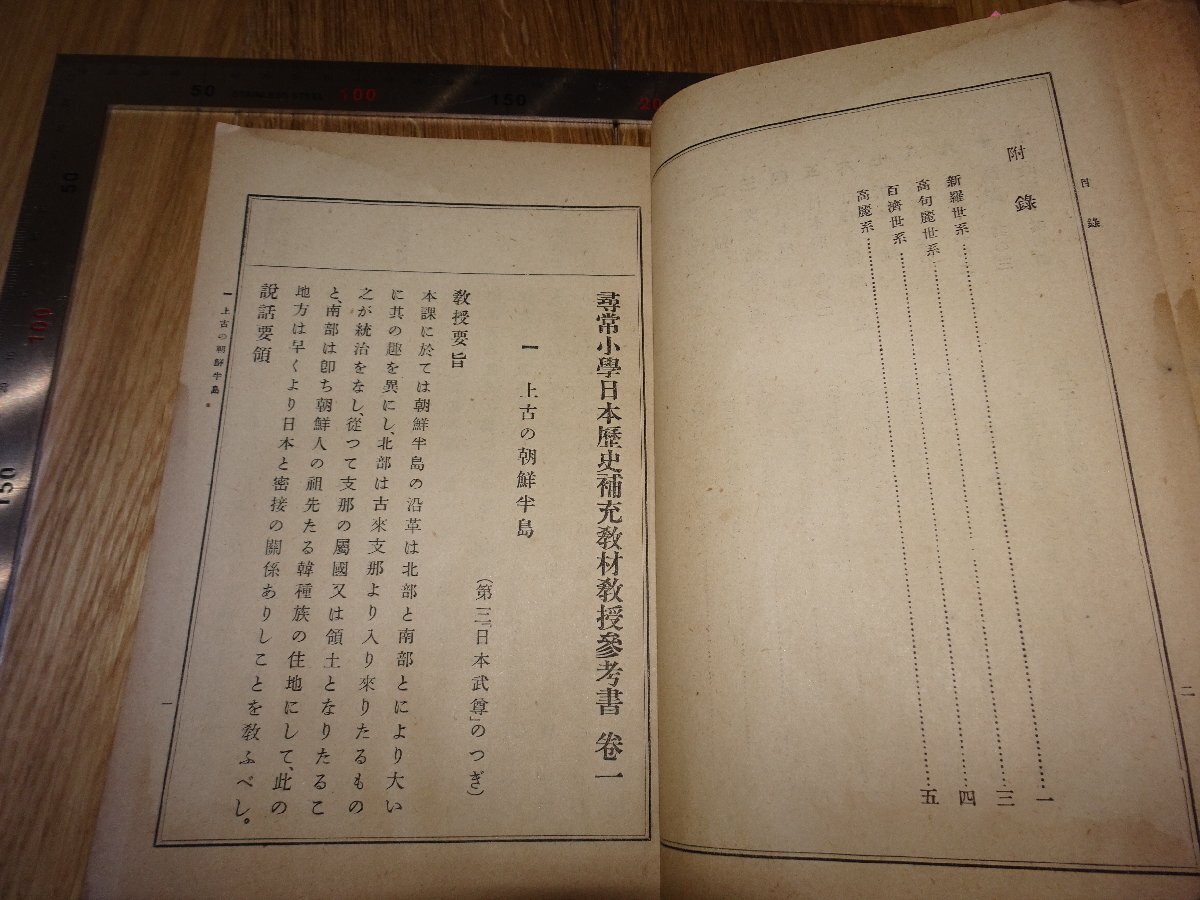 目錄
附錄
新羅世系……一
高句麗世系……三
百濟世系……四
高麗系……五
二
尋常小學日本歷史補充教材教授參考書 卷一
一 上古の朝鮮半島
(第三『日本武尊』のつぎ)
教授要旨
本課に於ては朝鮮半島の沿革は北部と南部とにより大い
に其の趣を異にし、北部は古來支那より入り來りたるもの
之が統治をなし、從つて支那の屬國又は領土となりたるこ
と、南部は卽ち朝鮮人の祖先たる韓種族の住地にして、此の
地方は早くより日本と密接の關係ありしことを敎ふべし。
說話要領
一 上古の朝鮮半島
一
50
100
150
20
50
100
150